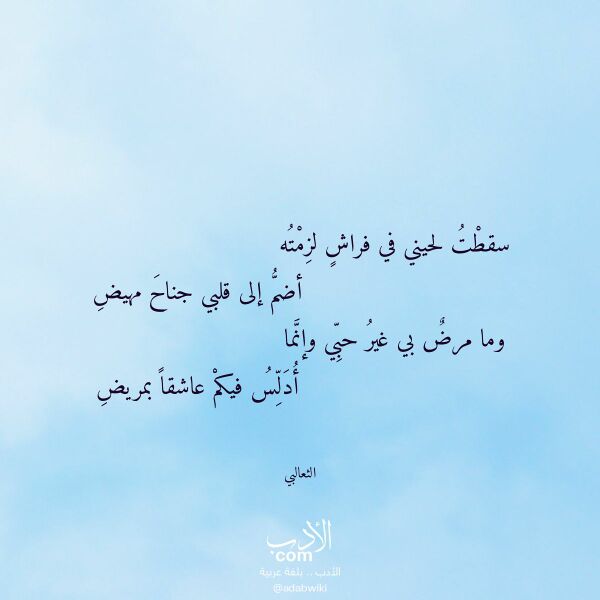 سقطْتُ لحيني في فراشٍ لزِمْتُه
أضمُّ إلى قلبي جناحَ مهيضِ
وما مرضٌ بي غيرُ حبِّي وإنَّما
أُدَلِّسُ فيكمْ عاشقاً بمريضِ
الثعالبي
الأدب
com
الأدب .. بلغة عربية
@adabwiki